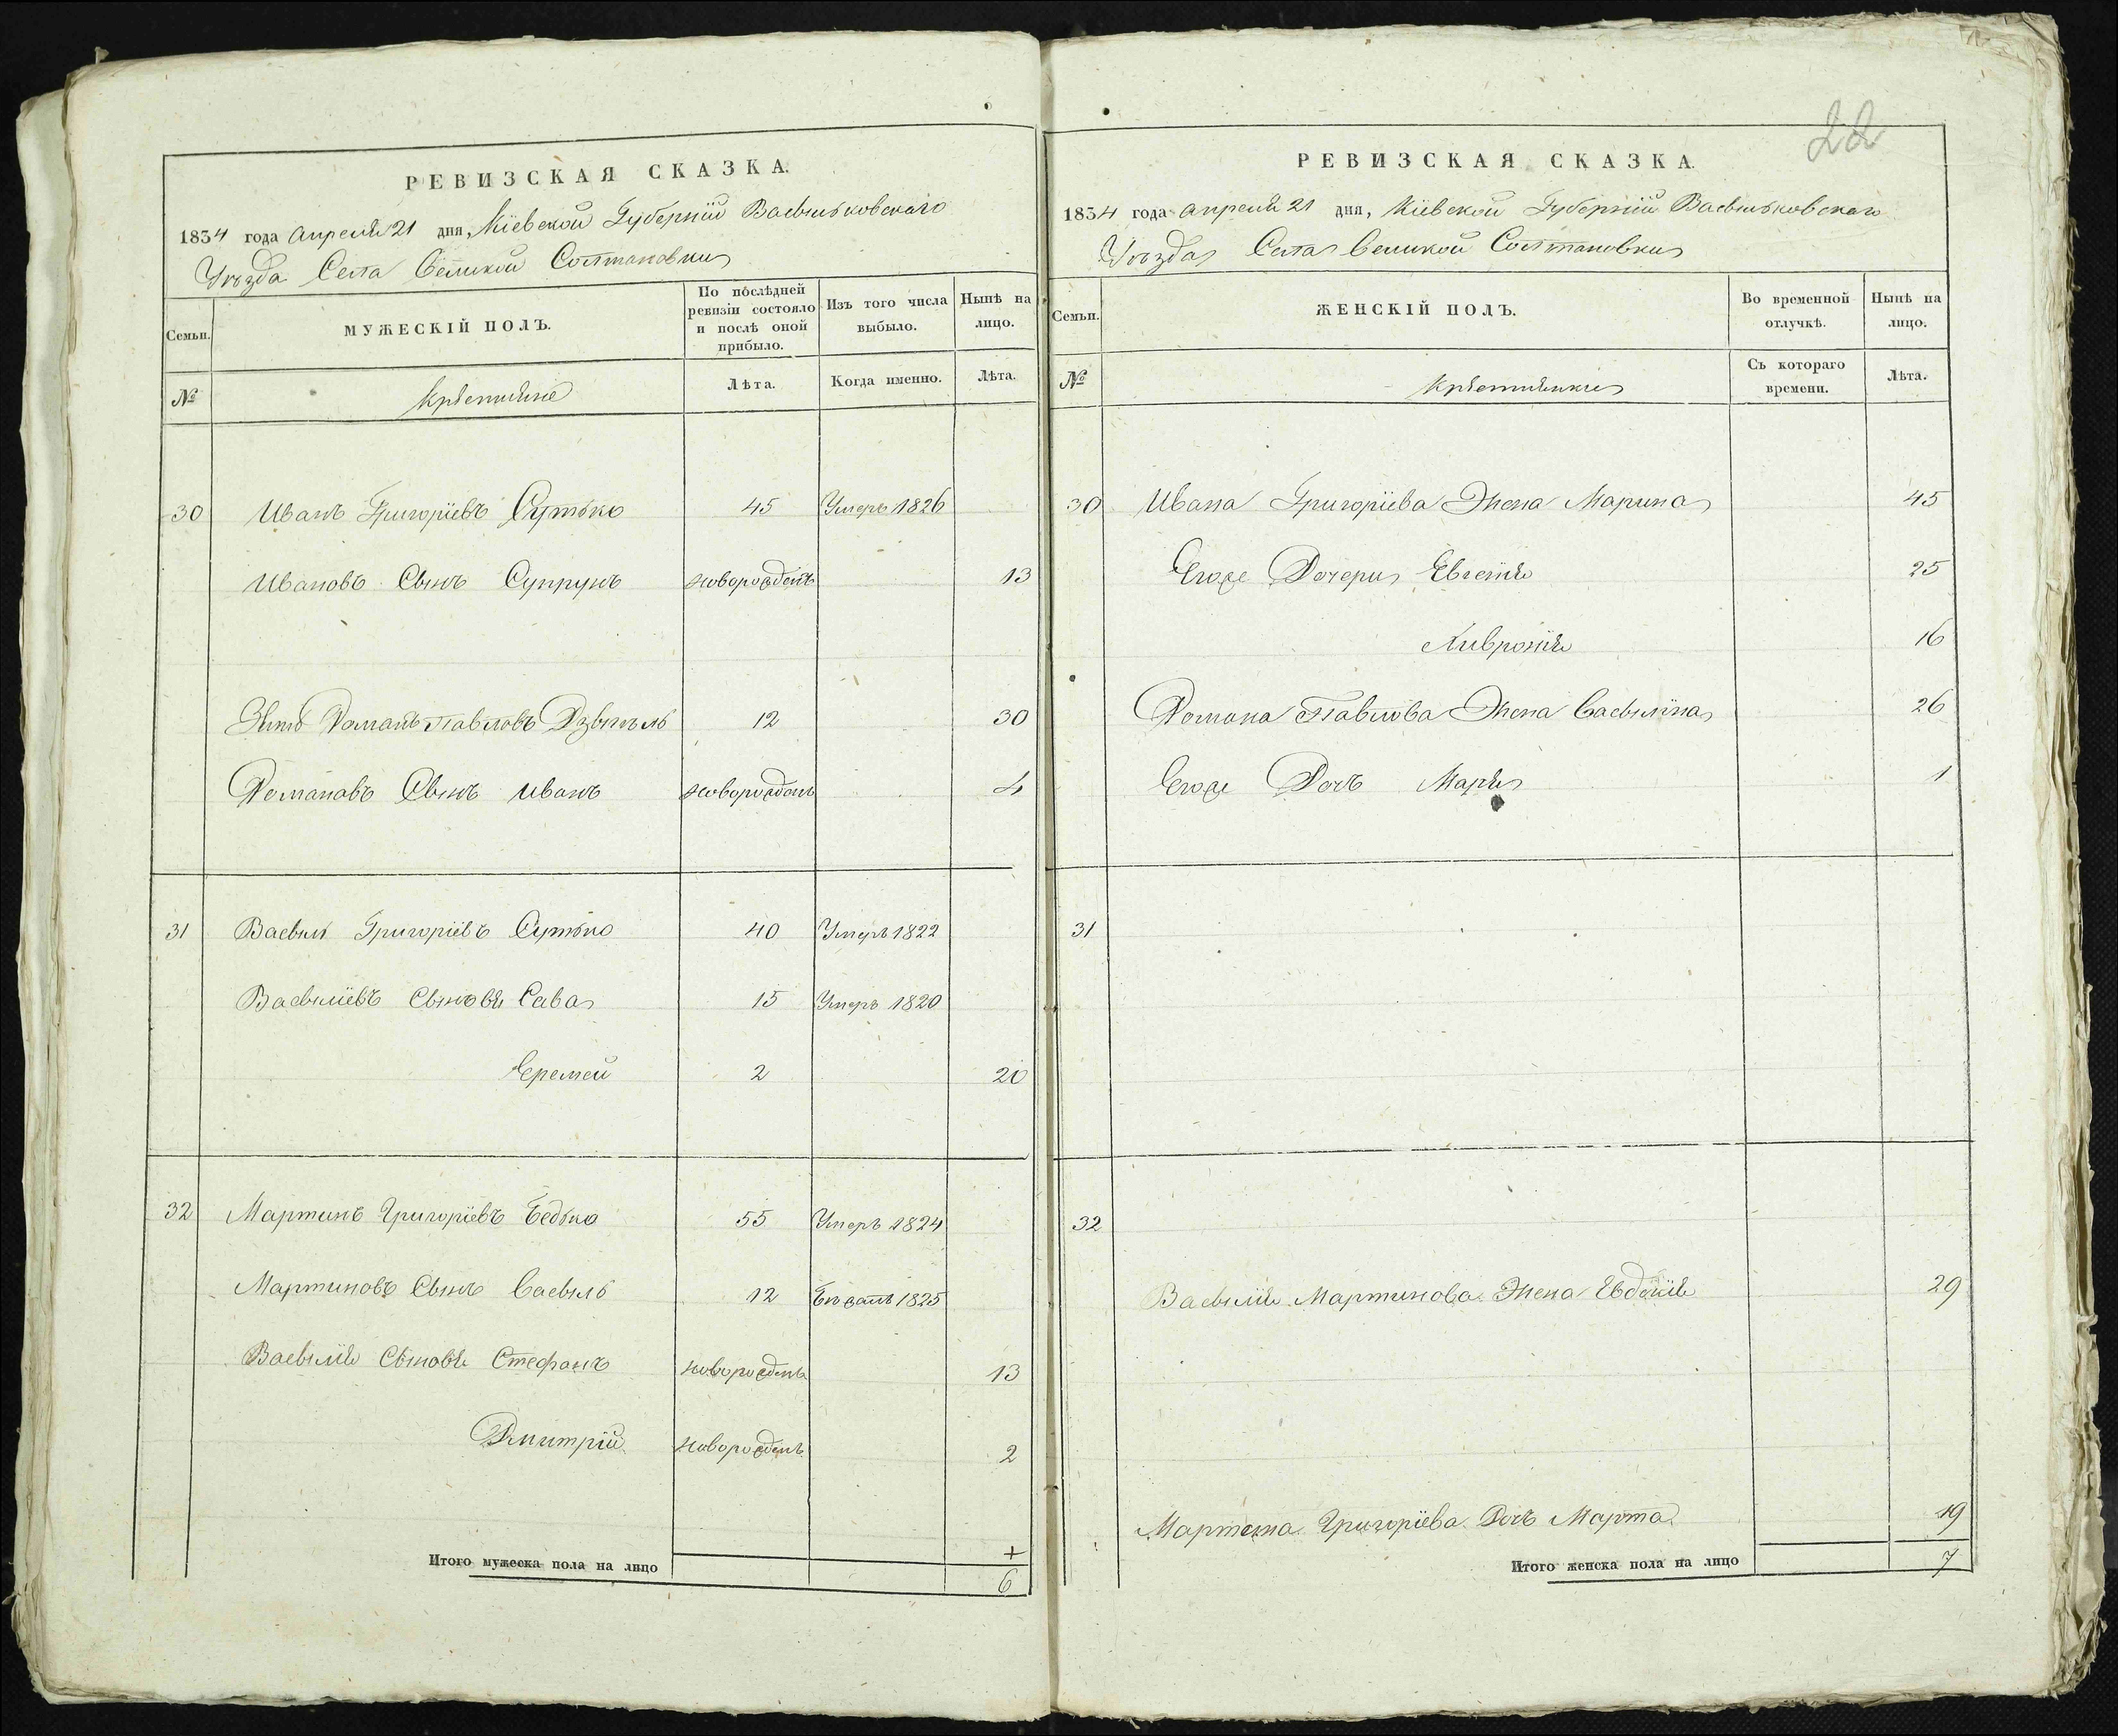 22
РЕВИЗСКАЯ СКАЗКА.
1834 года Апреля 21 дня, Кіевской Губерніи Васильковскаго
Уѣзда Села Великой Солтановки
Семьи.
МУЖЕСКІЙ ПОЛЪ.
По послѣдней ревизіи состояло и послѣ оной прибыло.
Изъ того числа выбыло.
Нынѣ на лицо.
№
Лѣта.
Когда именно.
Лѣта.
30 Иванъ Григоріевъ Сутько 45 Умеръ 1826
Ивановъ Сынъ Супрунъ новорожденъ 13
Зять Романъ Павловъ 12 30
Романовъ Сынъ Иванъ новорожденъ 4
31 Василь Григоріевъ Сутько 40 Умеръ 1822
Василіевъ Сыновя Сава 15 Умеръ 1820
Еремей 2 20
32 Мартинъ Григоріевъ Бедько 55 Умеръ 1824
Мартиновъ Сынъ Василь 12 1825
Василія Сыновя Стефанъ новорожденъ 13
Дмитрій новорожденъ 2
+
Итого мужеска пола на лицо 6
РЕВИЗСКАЯ СКАЗКА.
1834 года Апреля 21 дня, Кіевской Губерніи Васильковскаго
Уѣзда Села Великой Солтановки
Семьи.
ЖЕНСКІЙ ПОЛЪ.
Во временной отлучкѣ.
Нынѣ на лицо.
№
Съ котораго времени.
Лѣта.
30 Ивана Григоріева Жена Марина 45
Егоже Дочери Евгенія 25
Хивронія 16
Романа Павлова Жена Василина 26
Егоже Дочь Марія 1
31
32
Василія Мартинова Жена Евдокія 29
Мартина Григоріева Дочь Марта 19
Итого женска пола на лицо 7